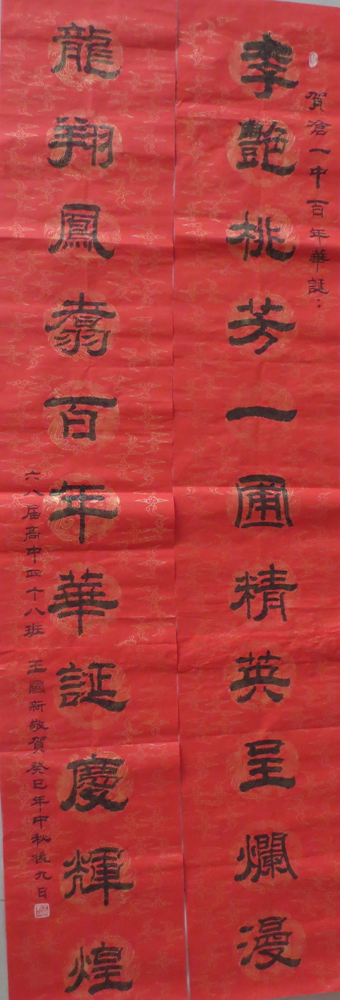 賀滄一中百年華誕：
李艷桃芳一圃精英呈爛漫
龍翔鳳翥百年華誕慶輝煌
六八届高中四十八班 王國新敬賀癸巳年中秋後九日